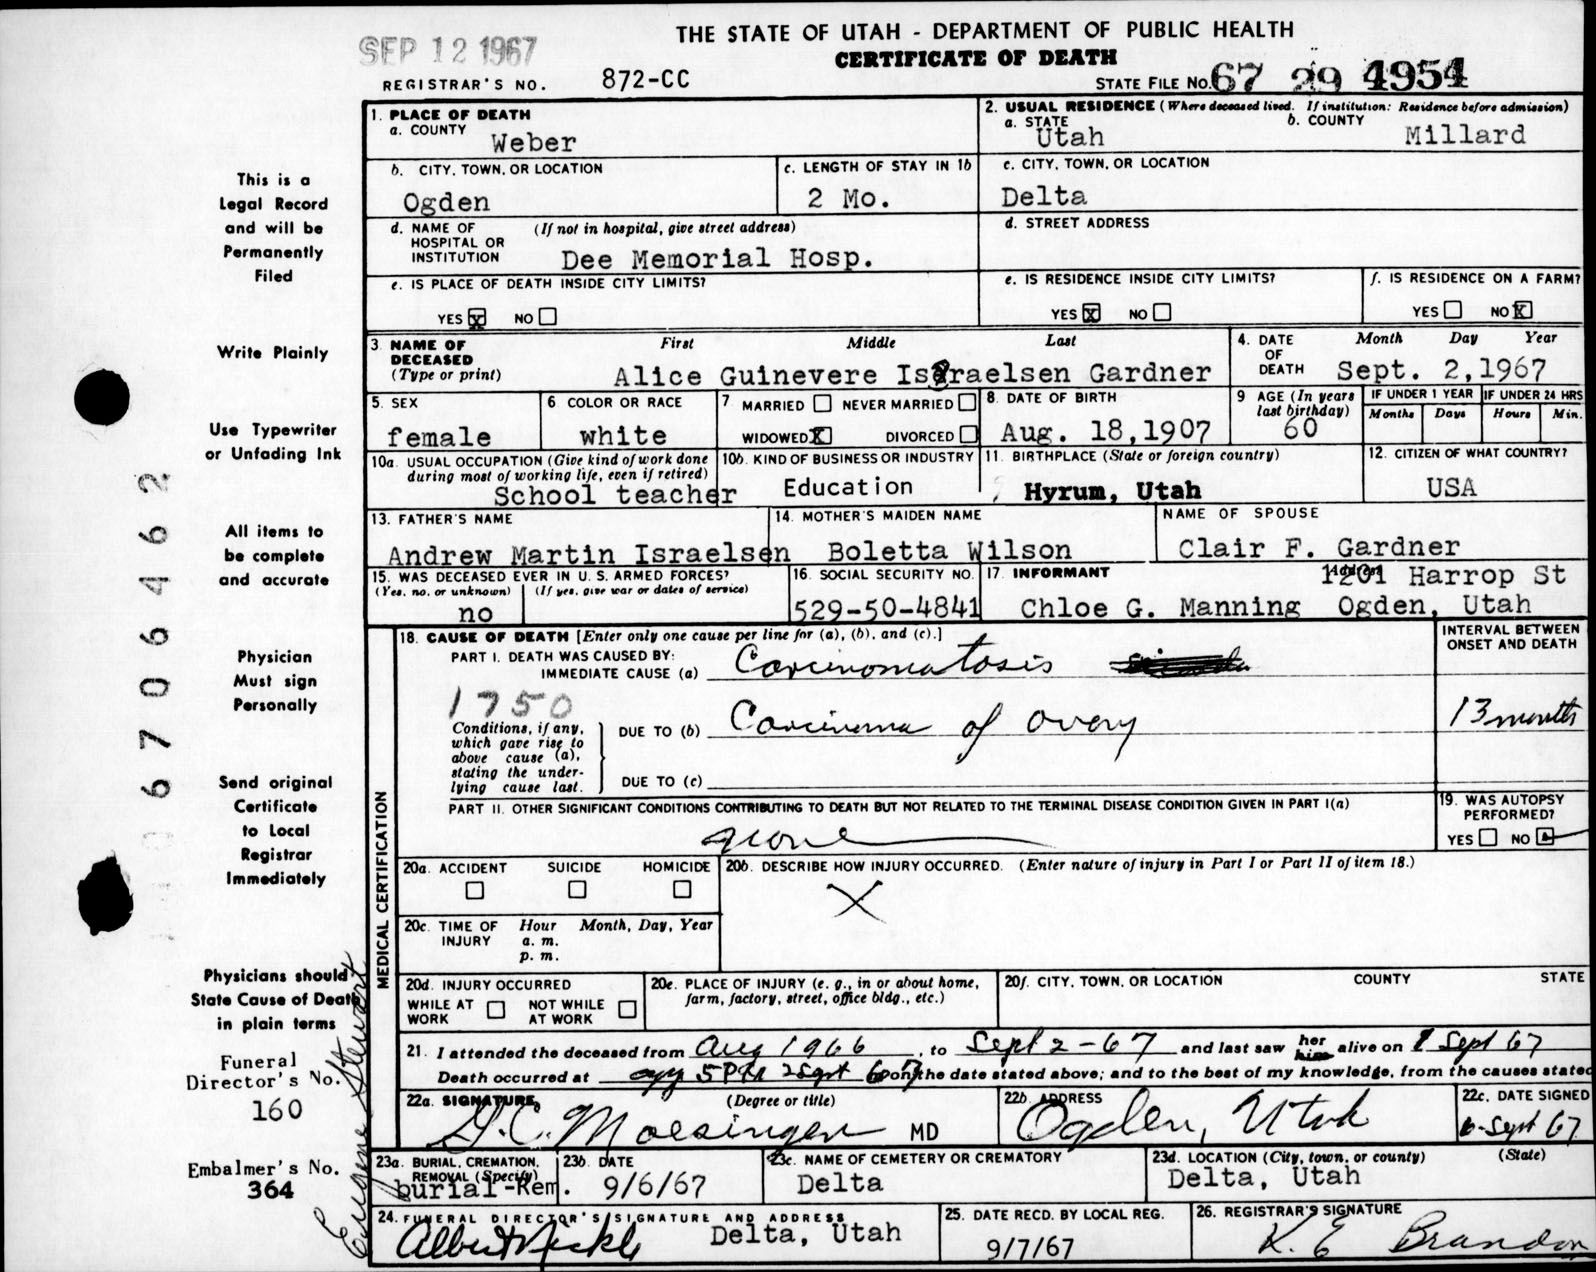 SEP 12 1967
THE STATE OF UTAH - DEPARTMENT OF PUBLIC HEALTH
CERTIFICATE OF DEATH
REGISTRAR'S NO. 872-CC
STATE FILE NO. 67 29 4954
This is a
Legal Record
and will be
Permanently
Filed
Write Plainly
Use Typewriter
or Unfading Ink
All items to
be complete
and accurate
Physician
Must sign
Personally
Send original
Certificate
to Local
Registrar
Immediately
Physicians should
State Cause of Death
in plain terms
Funeral
Director's No.
160
Embalmer's No.
364
Eugene Stewart
06706462
1. PLACE OF DEATH
a. COUNTY
Weber
2. USUAL RESIDENCE (Where deceased lived. If institution: Residence before admission)
a. STATE
Utah
b. COUNTY
Millard
b. CITY, TOWN, OR LOCATION
Ogden
c. LENGTH OF STAY IN 1b
2 Mo.
c. CITY, TOWN, OR LOCATION
Delta
d. NAME OF (If not in hospital, give street address)
HOSPITAL OR
INSTITUTION
Dee Memorial Hosp.
d. STREET ADDRESS
e. IS PLACE OF DEATH INSIDE CITY LIMITS?
YES X NO
e. IS RESIDENCE INSIDE CITY LIMITS?
YES X NO
f. IS RESIDENCE ON A FARM?
YES NO X
3. NAME OF
DECEASED
(Type or print)
First Middle Last
Alice Guinevere Israelsen Gardner
4. DATE
OF
DEATH
Month Day Year
Sept. 2,1967
5. SEX
female
6 COLOR OR RACE
white
7 MARRIED NEVER MARRIED
WIDOWED X DIVORCED
8. DATE OF BIRTH
Aug. 18,1907
9 AGE (In years
last birthday)
60
IF UNDER 1 YEAR
Months Days
IF UNDER 24 HRS
Hours Min.
10a. USUAL OCCUPATION (Give kind of work done
during most of working life, even if retired)
School teacher
10b. KIND OF BUSINESS OR INDUSTRY
Education
11. BIRTHPLACE (State or foreign country)
Hyrum, Utah
12. CITIZEN OF WHAT COUNTRY?
USA
13. FATHER'S NAME
Andrew Martin Israelsen
14. MOTHER'S MAIDEN NAME
Boletta Wilson
NAME OF SPOUSE
Clair F. Gardner
15. WAS DECEASED EVER IN U. S. ARMED FORCES?
(Yes, no, or unknown) (If yes, give war or dates of service)
no
16. SOCIAL SECURITY NO.
529-50-4841
17. INFORMANT
Address
1201 Harrop St
Chloe G. Manning Ogden, Utah
MEDICAL CERTIFICATION
18. CAUSE OF DEATH [Enter only one cause per line for (a), (b), and (c).]
INTERVAL BETWEEN
ONSET AND DEATH
PART I. DEATH WAS CAUSED BY:
IMMEDIATE CAUSE (a) Carcinomatosis
1750
Conditions, if any,
which gave rise to
above cause (a),
stating the under-
lying cause last.
DUE TO (b) Carcinoma of ovary
13 months
DUE TO (c)
PART II. OTHER SIGNIFICANT CONDITIONS CONTRIBUTING TO DEATH BUT NOT RELATED TO THE TERMINAL DISEASE CONDITION GIVEN IN PART I(a)
none
19. WAS AUTOPSY
PERFORMED?
YES NO
20a. ACCIDENT SUICIDE HOMICIDE
20b. DESCRIBE HOW INJURY OCCURRED. (Enter nature of injury in Part I or Part II of item 18.)
X
20c. TIME OF Hour Month, Day, Year
INJURY a. m.
p. m.
20d. INJURY OCCURRED
WHILE AT NOT WHILE
WORK AT WORK
20e. PLACE OF INJURY (e. g., in or about home,
farm, factory, street, office bldg., etc.)
20f. CITY, TOWN, OR LOCATION COUNTY STATE
21. I attended the deceased from Aug 1966, to Sept 2-67 and last saw her him alive on 1 Sept 67
Death occurred at 5 PM 2 Sept 67 on the date stated above; and to the best of my knowledge, from the causes stated
22a. SIGNATURE (Degree or title)
G.C. Moesinger MD
22b. ADDRESS
Ogden, Utah
22c. DATE SIGNED
6-Sept 67
23a. BURIAL, CREMATION,
REMOVAL (Specify)
burial-Rem.
23b. DATE
9/6/67
23c. NAME OF CEMETERY OR CREMATORY
Delta
23d. LOCATION (City, town, or county) (State)
Delta, Utah
24. FUNERAL DIRECTOR'S SIGNATURE AND ADDRESS
Albert Nickle Delta, Utah
25. DATE RECD. BY LOCAL REG.
9/7/67
26. REGISTRAR'S SIGNATURE
K. E Brandon